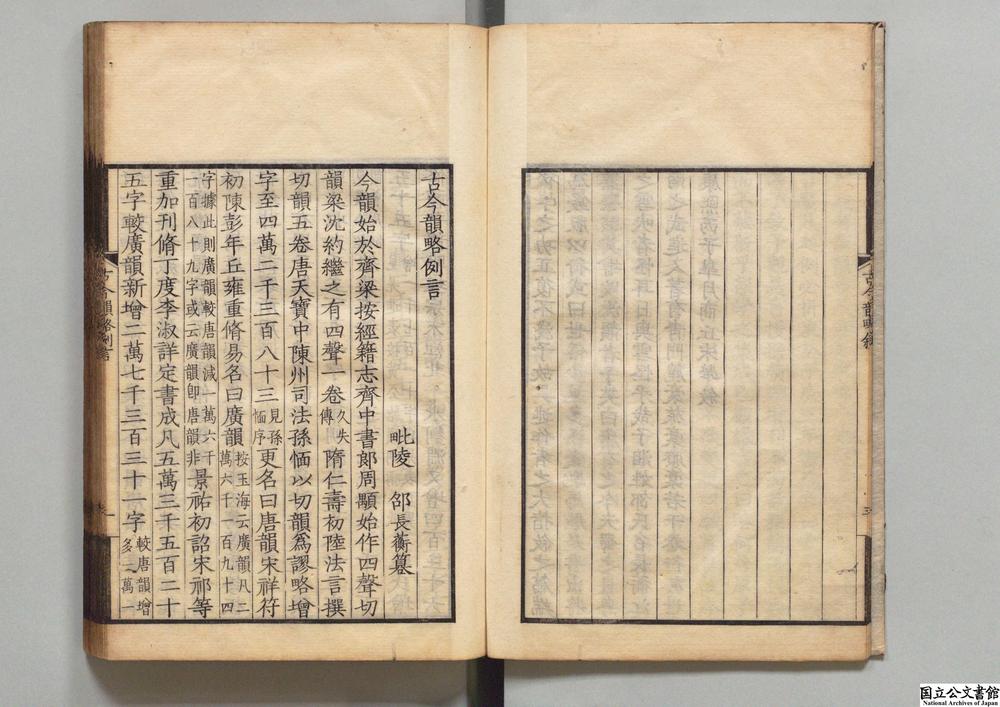 古今韻略例言
毗陵　邵長蘅纂
今韻始於齊梁按經籍志齊中書郎周顒始作四聲切
韻梁沈約繼之有四聲一卷久失傳隋仁壽初陸法言撰
切韻五卷唐天寶中陳州司法孫愐以切韻爲謬略增
字至四萬二千三百八十三見孫愐序更名曰唐韻宋祥符
初陳彭年丘雍重脩易名曰廣韻按玉海云廣韻凡二萬六千一百九十四
字據此則廣韻較唐韻減一萬六千一百八十九字或云廣韻卽唐韻非景祐初詔宋祁等
重加刊脩丁度李淑詳定書成凡五萬三千五百二十
五字較廣韻新增二萬七千三百三十一字較唐韻增多一萬一
古今韻略例言
一
古今韻略敘
三
国立公文書館
National Archives of Japan